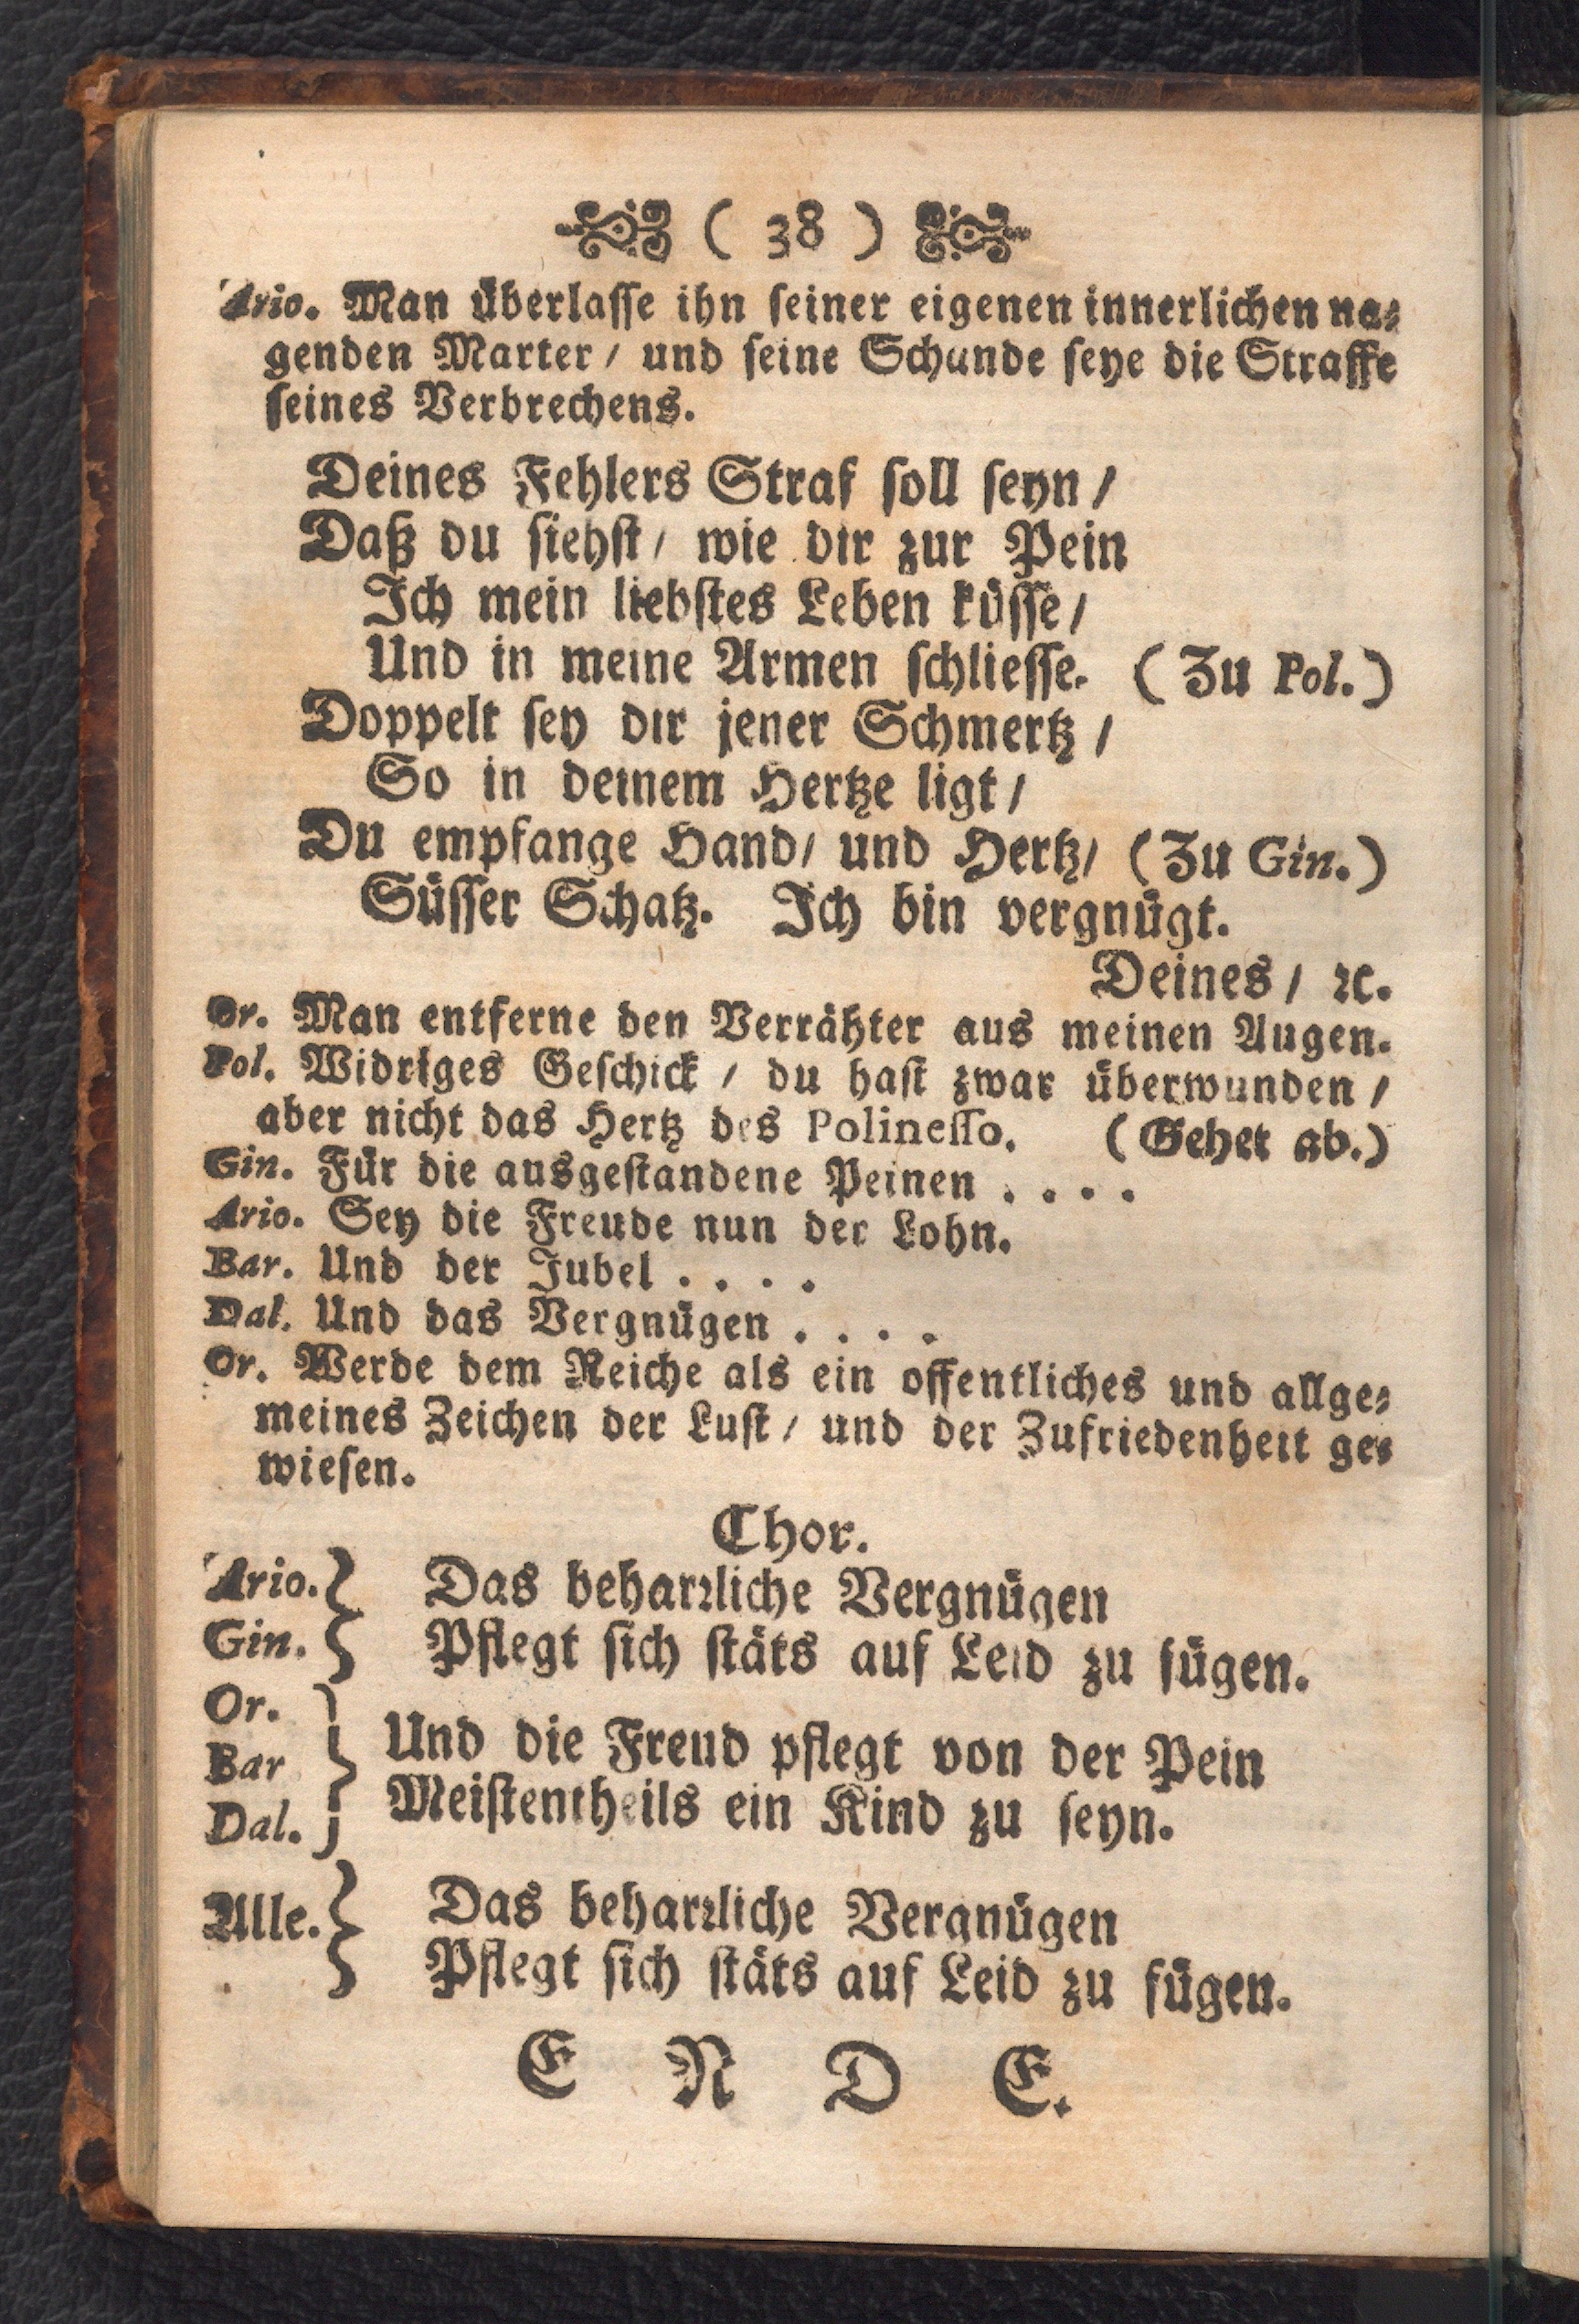 ( 38 )
Ario. Man überlasse ihn seiner eigenen innerlichen na-
genden Marter / und seine Schande seye die Straffe
seines Verbrechens.
Deines Fehlers Straf soll seyn /
Daß du siehst / wie dir zur Pein
Ich mein liebstes Leben küsse /
Und in meine Armen schliesse. ( Zu Pol. )
Doppelt sey dir jener Schmertz /
So in deinem Hertze ligt /
Du empfange Hand / und Hertz / ( Zu Gin. )
Süsser Schatz. Ich bin vergnügt.
Deines / ꝛc.
Or. Man entferne den Verrähter aus meinen Augen.
Pol. Widriges Geschick / du hast zwar überwunden /
aber nicht das Hertz des Polinesso. ( Gehet ab. )
Gin. Für die ausgestandene Peinen . . . .
Ario. Sey die Freude nun der Lohn.
Bar. Und der Jubel . . . .
Dal. Und das Vergnügen . . . .
Or. Werde dem Reiche als ein offentliches und allge-
meines Zeichen der Lust / und der Zufriedenheit ge-
wiesen.
Chor.
Ario. } Das beharrliche Vergnügen
Gin. } Pflegt sich stäts auf Leid zu fügen.
Or.
Bar } Und die Freud pflegt von der Pein
Dal. } Meistentheils ein Kind zu seyn.
Alle. } Das beharrliche Vergnügen
Pflegt sich stäts auf Leid zu fügen.
E N D E.